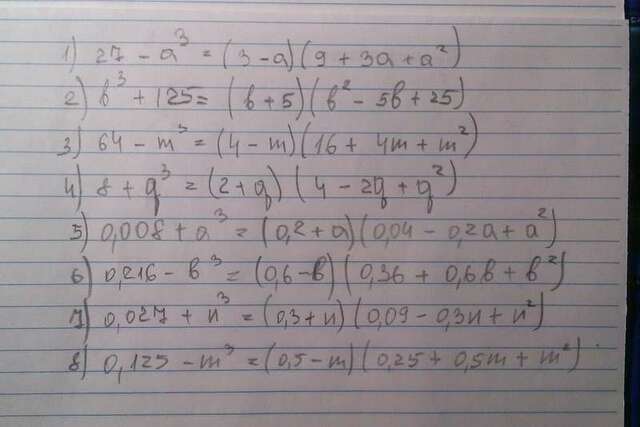 1) 27 - a³ = (3-a)(9 + 3a + a²)
2) b³ + 125 = (b+5)(b² - 5b + 25)
3) 64 - m³ = (4-m)(16 + 4m + m²)
4) 8 + q³ = (2+q)(4 - 2q + q²)
5) 0,008 + a³ = (0,2+a)(0,04 - 0,2a + a²)
6) 0,216 - b³ = (0,6-b)(0,36 + 0,6b + b²)
7) 0,027 + n³ = (0,3+n)(0,09 - 0,3n + n²)
8) 0,125 - m³ = (0,5-m)(0,25 + 0,5m + m²)